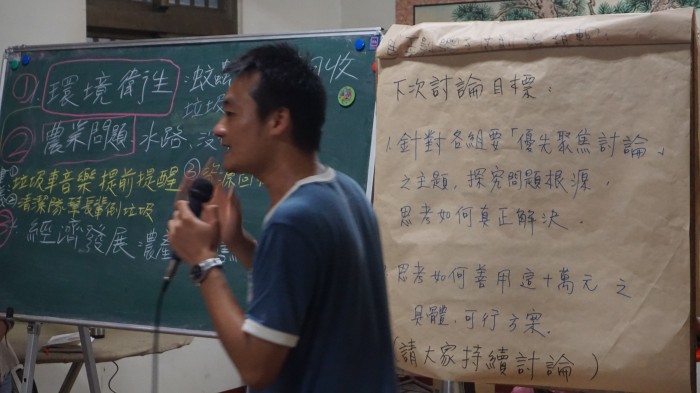 ① 環境衛生：蚊 回收
垃圾
② 農業問題 水路、沒
①垃圾車音樂提前提醒 ③ 回
②清潔隊 倒垃圾
③ 經濟發展：農產
下次討論目標：
1.針對各組要「優先聚焦討論」
之主題，探究問題根源，
思考如何真正解決．
思考如何善用這十萬元之
具體．可行方案．
(請大家持續討論)